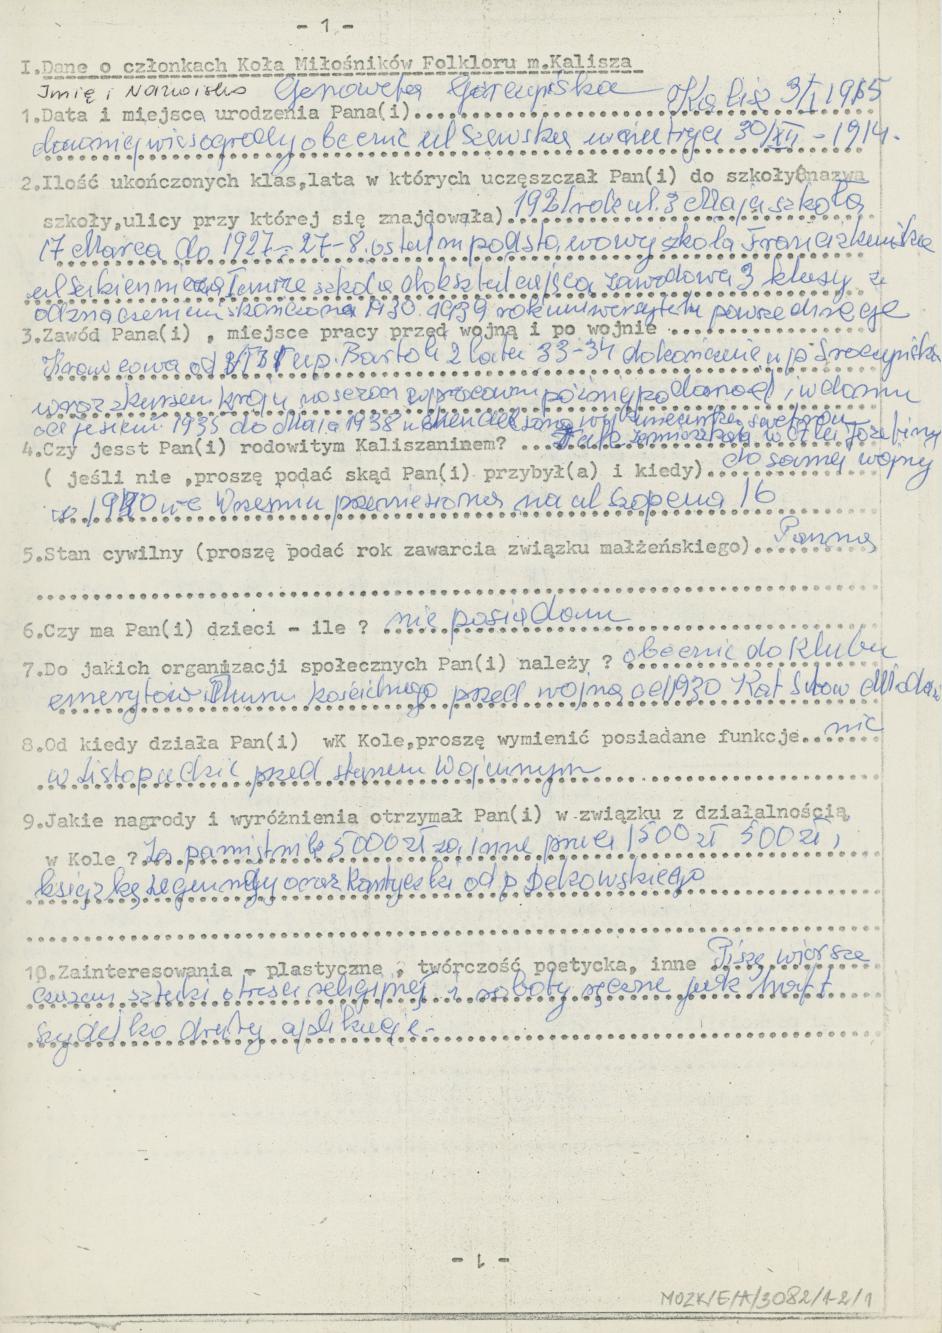 - 1 -
I.Dane o członkach Koła Miłośników Folkloru m.Kalisza
Imię i Nazwisko Genowefa Kalisz 3/I 1915
1.Data i miejsce urodzenia Pana(i)
dawniej winogrady obecnie ul Szewska 30/XII - 1914.
2.Ilość ukończonych klas,lata w których uczęszczał Pan(i) do szkoły(nazwa
szkoły,ulicy przy której się znajdowała) 1921 rok ul. 3 Maja szkoła
17 Marca do 1927 - 27-8 ostatni podstawowy szkoła Franciszkańska
ul Sukiennicza szkoła dokształcająca zawodowa 3 klasy z
odznaczeniem skończona 1930. 1939 rok uniwersytet powszechny
3.Zawód Pana(i) , miejsce pracy przed wojną i po wojnie
Krawcowa od u p. Bartoli 2 lata 33-34 dokończenie u p
oraz kursem kroju późnej podanad i w domu
od jesieni 1935 do Maja 1938 swetrów
4.Czy jesst Pan(i) rodowitym Kaliszaninem? Tak zamieszkała w Alei Józefiny
( jeśli nie ,proszę podać skąd Pan(i) przybył(a) i kiedy) do samej wojny
w 1940 we Wrześniu przeniesiona na ul Szopena 16
5.Stan cywilny (proszę podać rok zawarcia związku małżeńskiego) Panna
6.Czy ma Pan(i) dzieci - ile ? nie posiadam
7.Do jakich organizacji społecznych Pan(i) należy ? obecnie do Klubu
emerytów kościelnego przed wojną od 1930 Kat Stow Młodzi
8.Od kiedy działa Pan(i) wK Kole,proszę wymienić posiadane funkcje nie
w Listopadzie przed stanem Wojennym
9.Jakie nagrody i wyróżnienia otrzymał Pan(i) w związku z działalnością
w Kole ? Za pamiętnik 5000 zł za inne prace 1500 zł 500 zł,
książkę Legendy oraz Kantyczka od p Dekowskiego
10.Zainteresowania - plastyczne , twórczość poetycka, inne Piszę wiersze
czasem sztuki o treści religijnej i roboty ręczne jak haft
szydełko druty aplikacje -
- 1 -
MOZK/E/A/3082/1-2/1